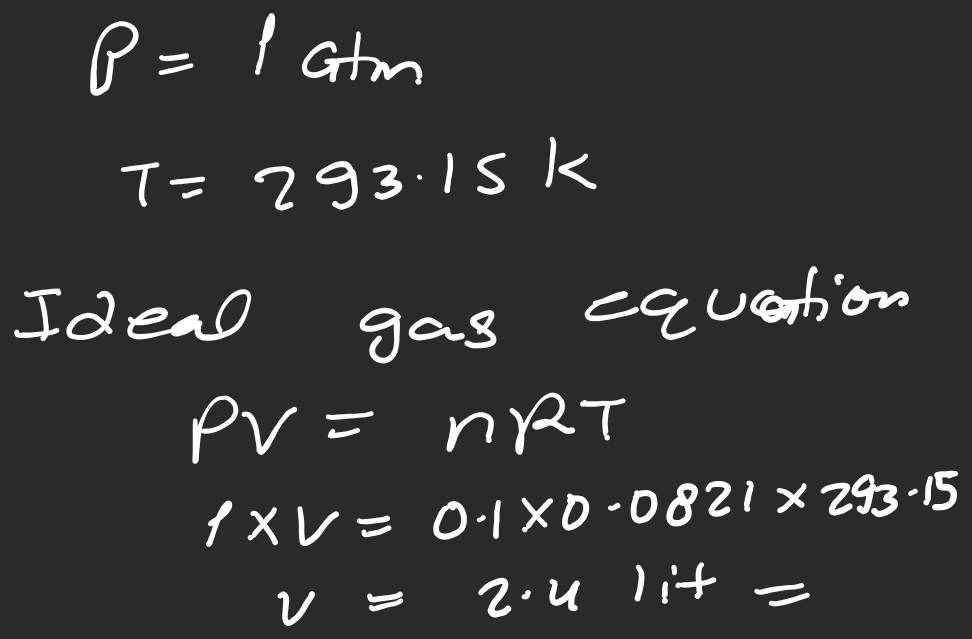 P = 1 atm
T = 293.15 K
Ideal gas equation
PV = nRT
1 x V = 0.1 x 0.0821 x 293.15
V = 2.4 lit =